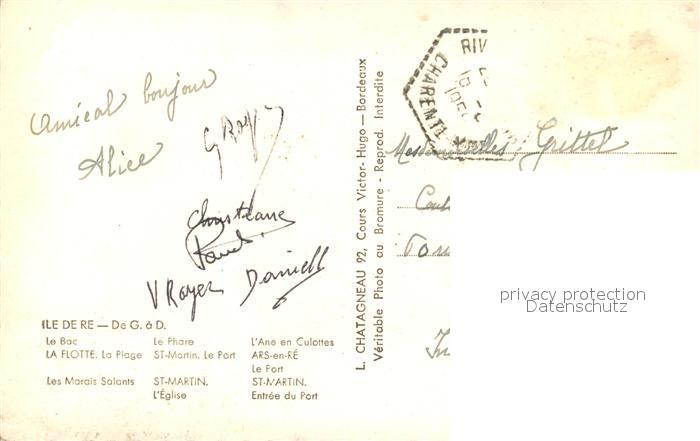 Amical bonjour
Alice
G Royer
Christiane
V Royer Daniell
ILE DE RE — De G. à D.
Le Bac Le Phare L'Ane en Culottes
LA FLOTTE. La Plage ST-Martin. Le Port ARS-en-RÉ
Le Port
Les Marais Salants ST-MARTIN. ST-MARTIN.
L'Église Entrée du Port
L. CHATAGNEAU 92, Cours Victor-Hugo — Bordeaux
Véritable Photo au Bromure - Reprod. Interdite
RIV
CHARENTE
Mesdemoiselles Grittel
privacy protection
Datenschutz